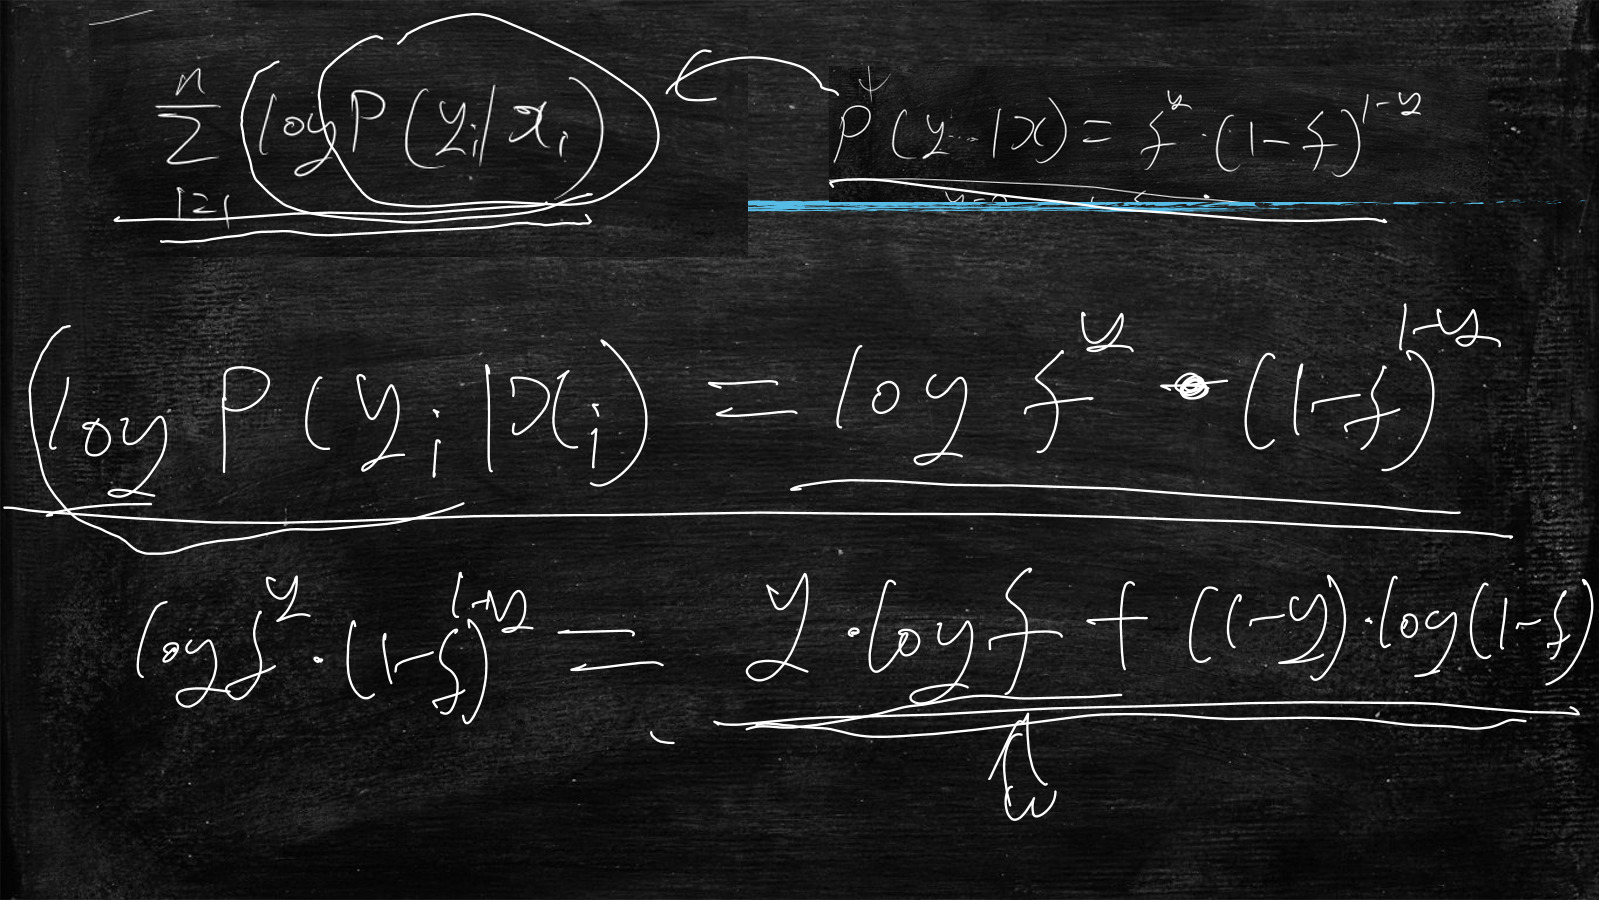 n
∑ (log P(y_i|x_i)) P(y|x) = f^y · (1-f)^{1-y}
i=1
(log P(y_i|x_i) = log f^y · (1-f)^{1-y}
log f^y · (1-f)^{1-y} = y · log f + (1-y) · log(1-f)
w